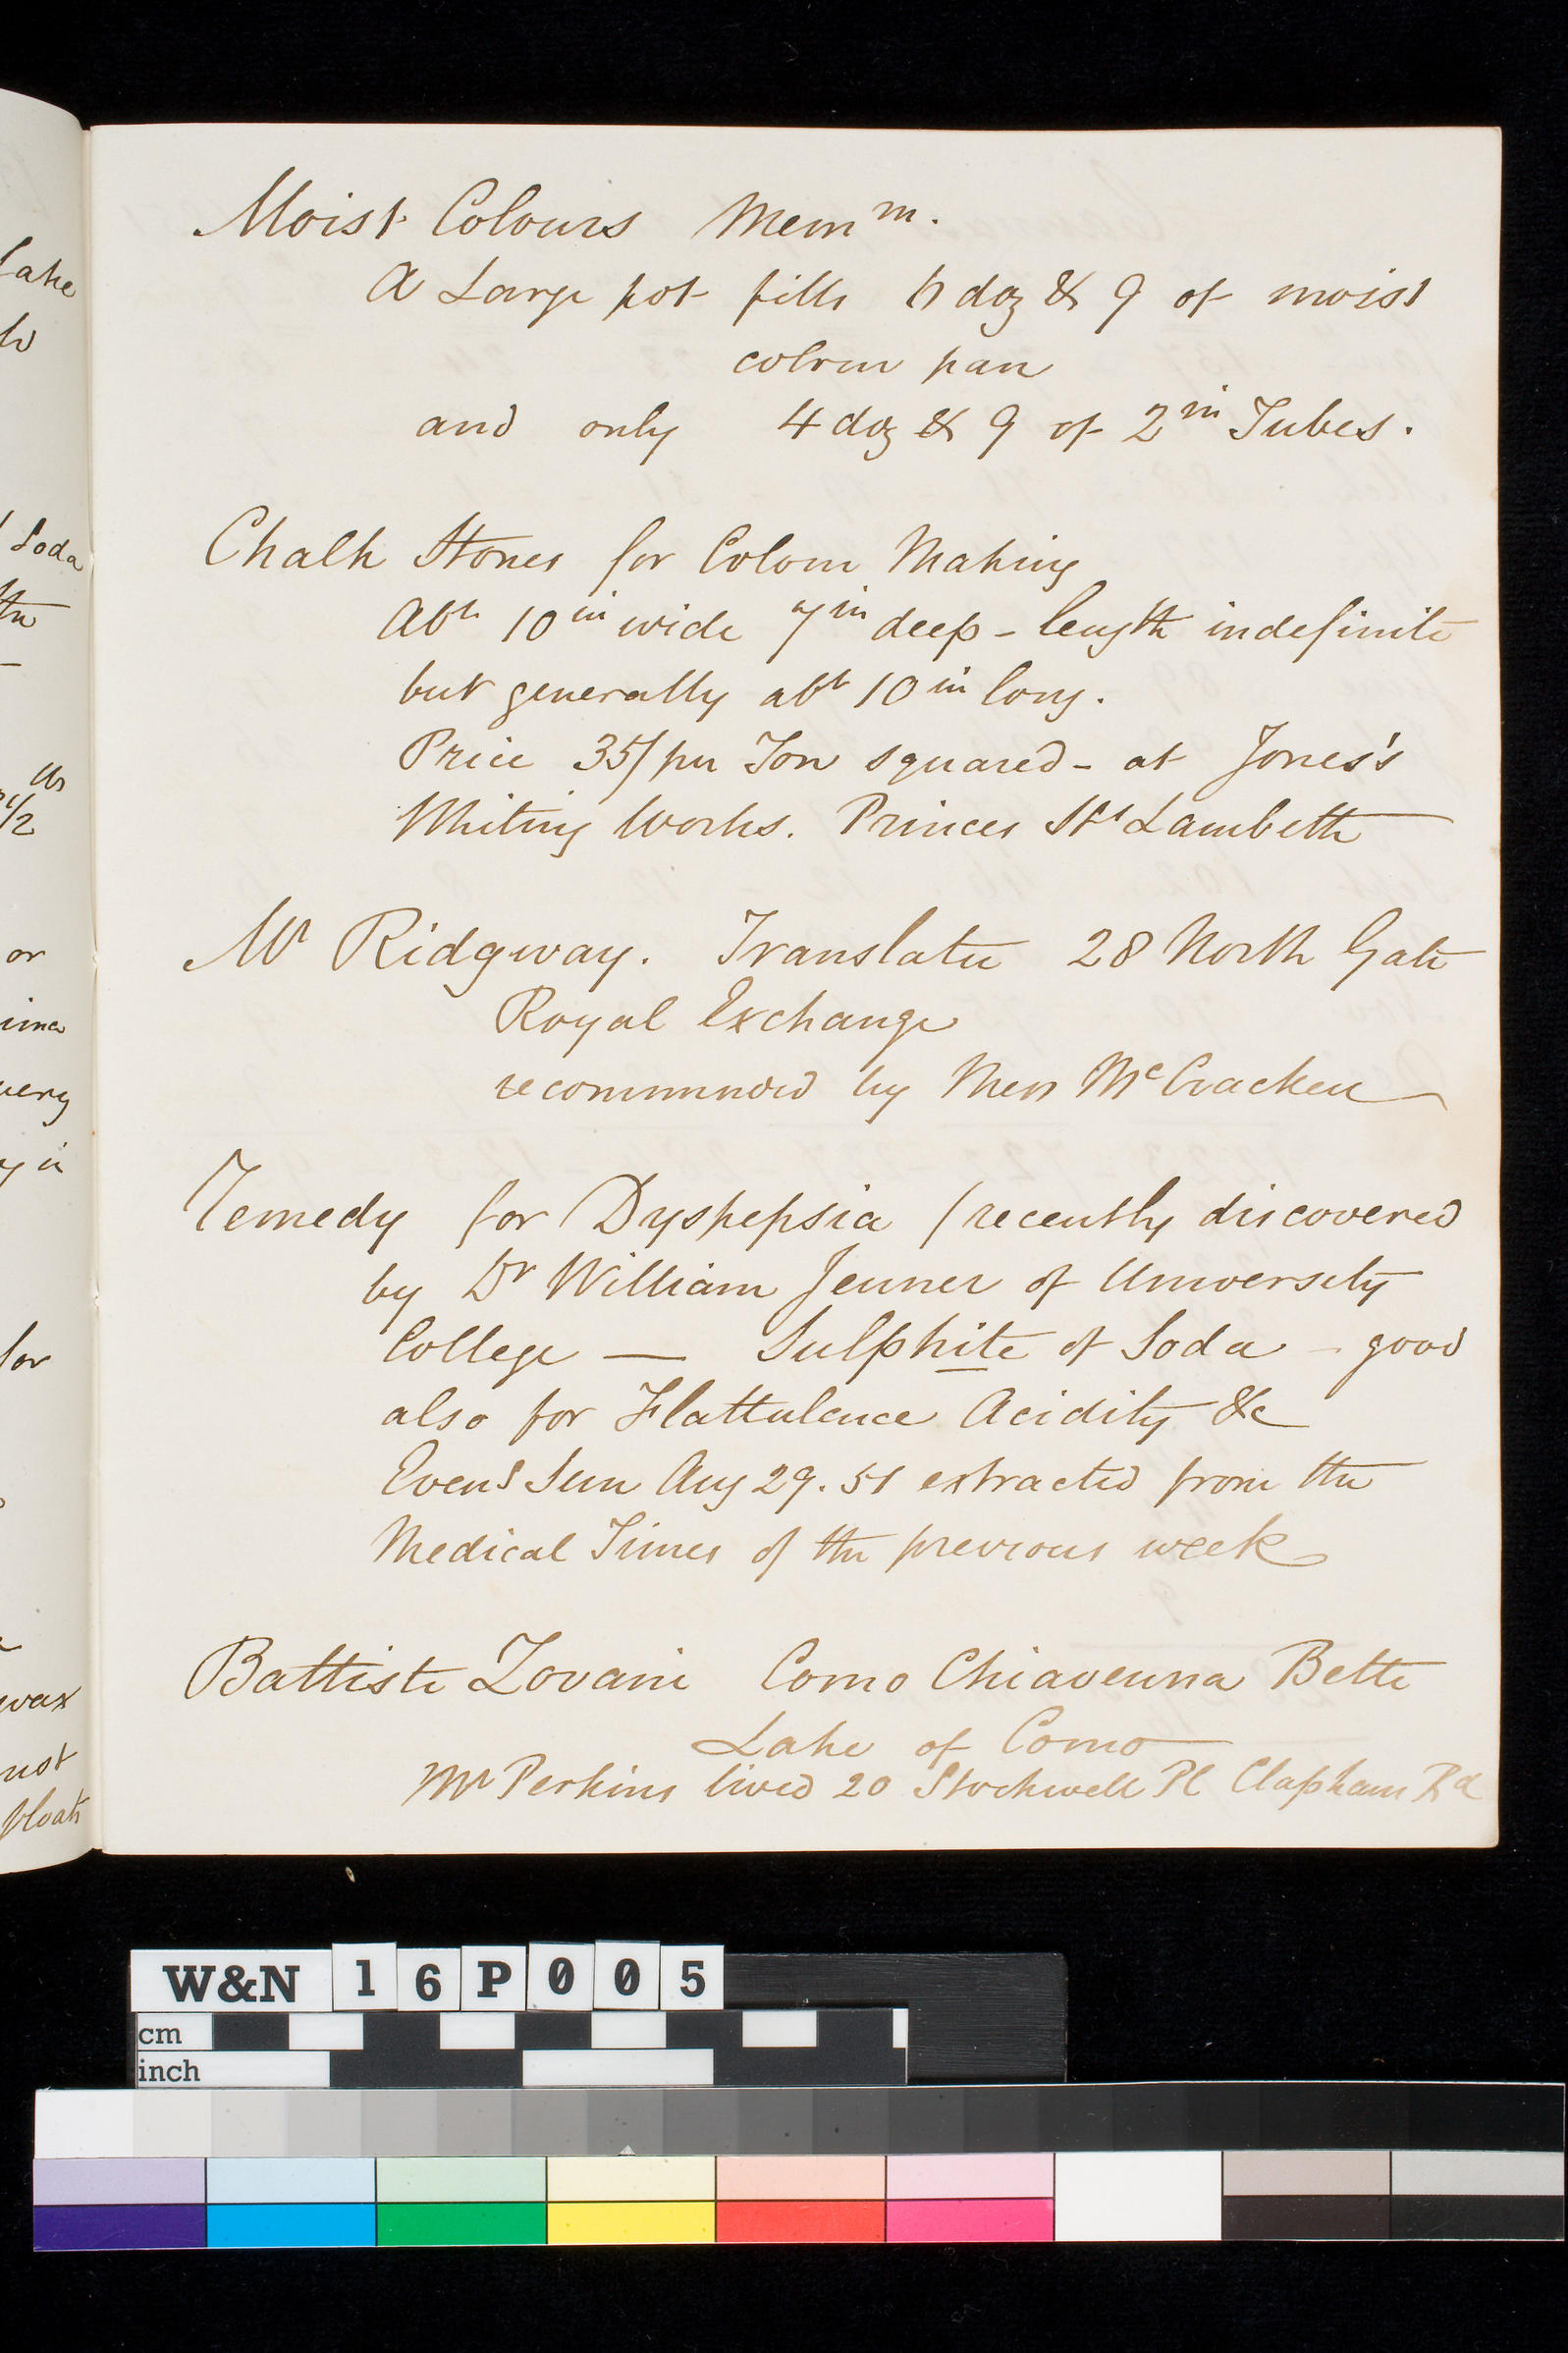 Moist Colours Mem^m.
A Large pot fills 6 doz & 9 of moist
colour pan
and only 4 doz & 9 of 2^in Tubes.
Chalk Stones for Colour Making
Abt 10^in wide 7^in deep - length indefinite
but generally abt 10^in long.
Price 35/ per Ton squared - at Jones's
Whiting Works. Princes St Lambeth
Mr Ridgway. Translater 28 North Gate
Royal Exchange
recommended by Mess McCracken
Remedy for Dyspepsia (recently discovered
by Dr William Jenner of University
College — Sulphite of Soda - good
also for Flattulence Acidity &c
Even^g Sun Aug 29. 51 extracted from the
Medical Times of the previous week
Battiste Zovani Como Chiavenna
Lake of Como
Mr Perkins lived 20 Stockwell Pl Clapham Rd
Lake
Soda
the
1/2
or
very
for
wax
must
float
W&N 16P005
cm
inch